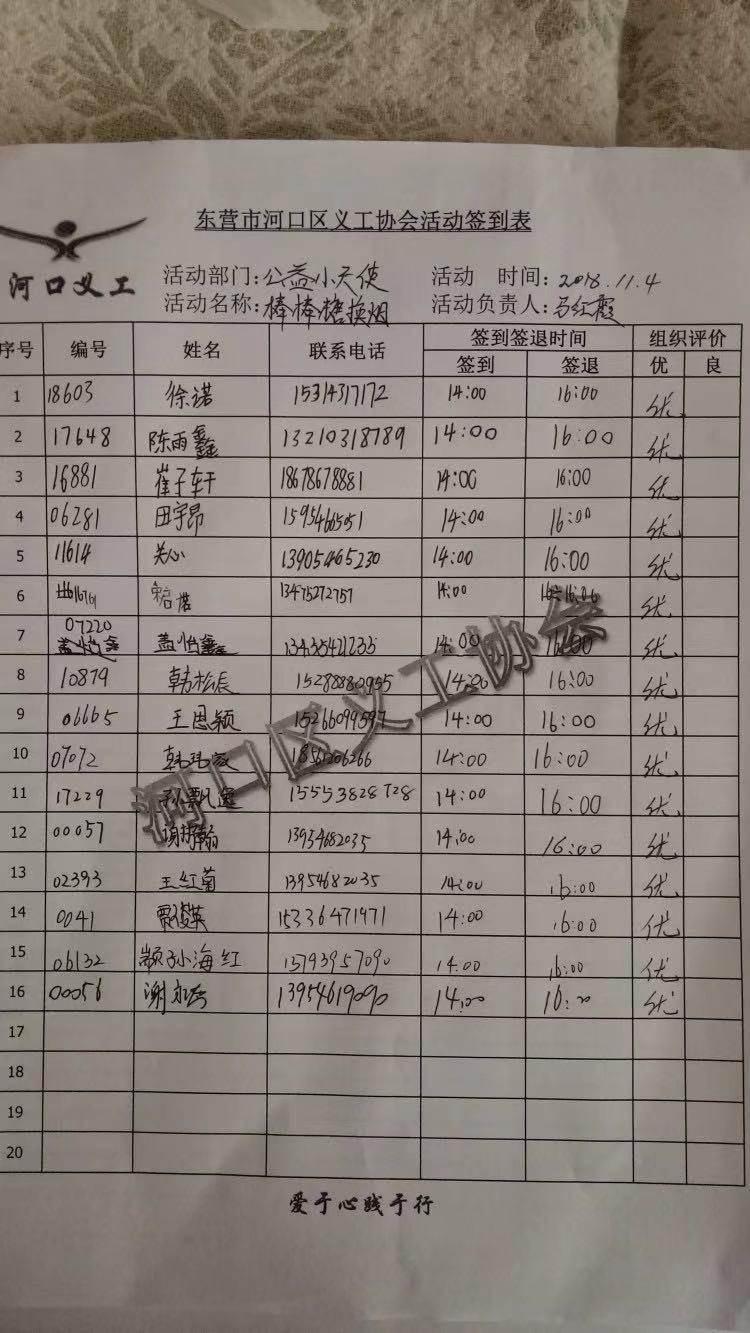 东营市河口区义工协会活动签到表
河口义工
活动部门:公益小天使 活动 时间:2018.11.4
活动名称:棒棒糖换烟 活动负责人:马红霞
序号 编号 姓名 联系电话 签到签退时间 组织评价
签到 签退 优 良
1 18603 徐诺 15314317172 14:00 16:00 优
2 17648 陈雨鑫 13210318789 14:00 16:00 优
3 16881 崔子轩 18678678881 14:00 16:00 优
4 06281 田宇昂 14:00 16:00 优
5 11614 关心 13905465230 14:00 16:00 优
6 13475272757 14:00 16:00 优
7 07220 盖怡鑫 盖怡鑫 14:00 16:00 优
8 10879 韩松辰 14:00 16:00 优
9 06665 王恩颖 15266099597 14:00 16:00 优
10 07072 14:00 16:00 优
11 17229 15553828728 14:00 16:00 优
12 00057 13954682035 14:00 16:00 优
13 02393 王红菊 13954682035 14:00 16:00 优
14 0041 15336471971 14:00 16:00 优
15 06132 颛孙海红 14:00 16:00 优
16 00056 13954619090 14:00 16:00 优
17
18
19
20
河口区义工协会
爱于心践于行